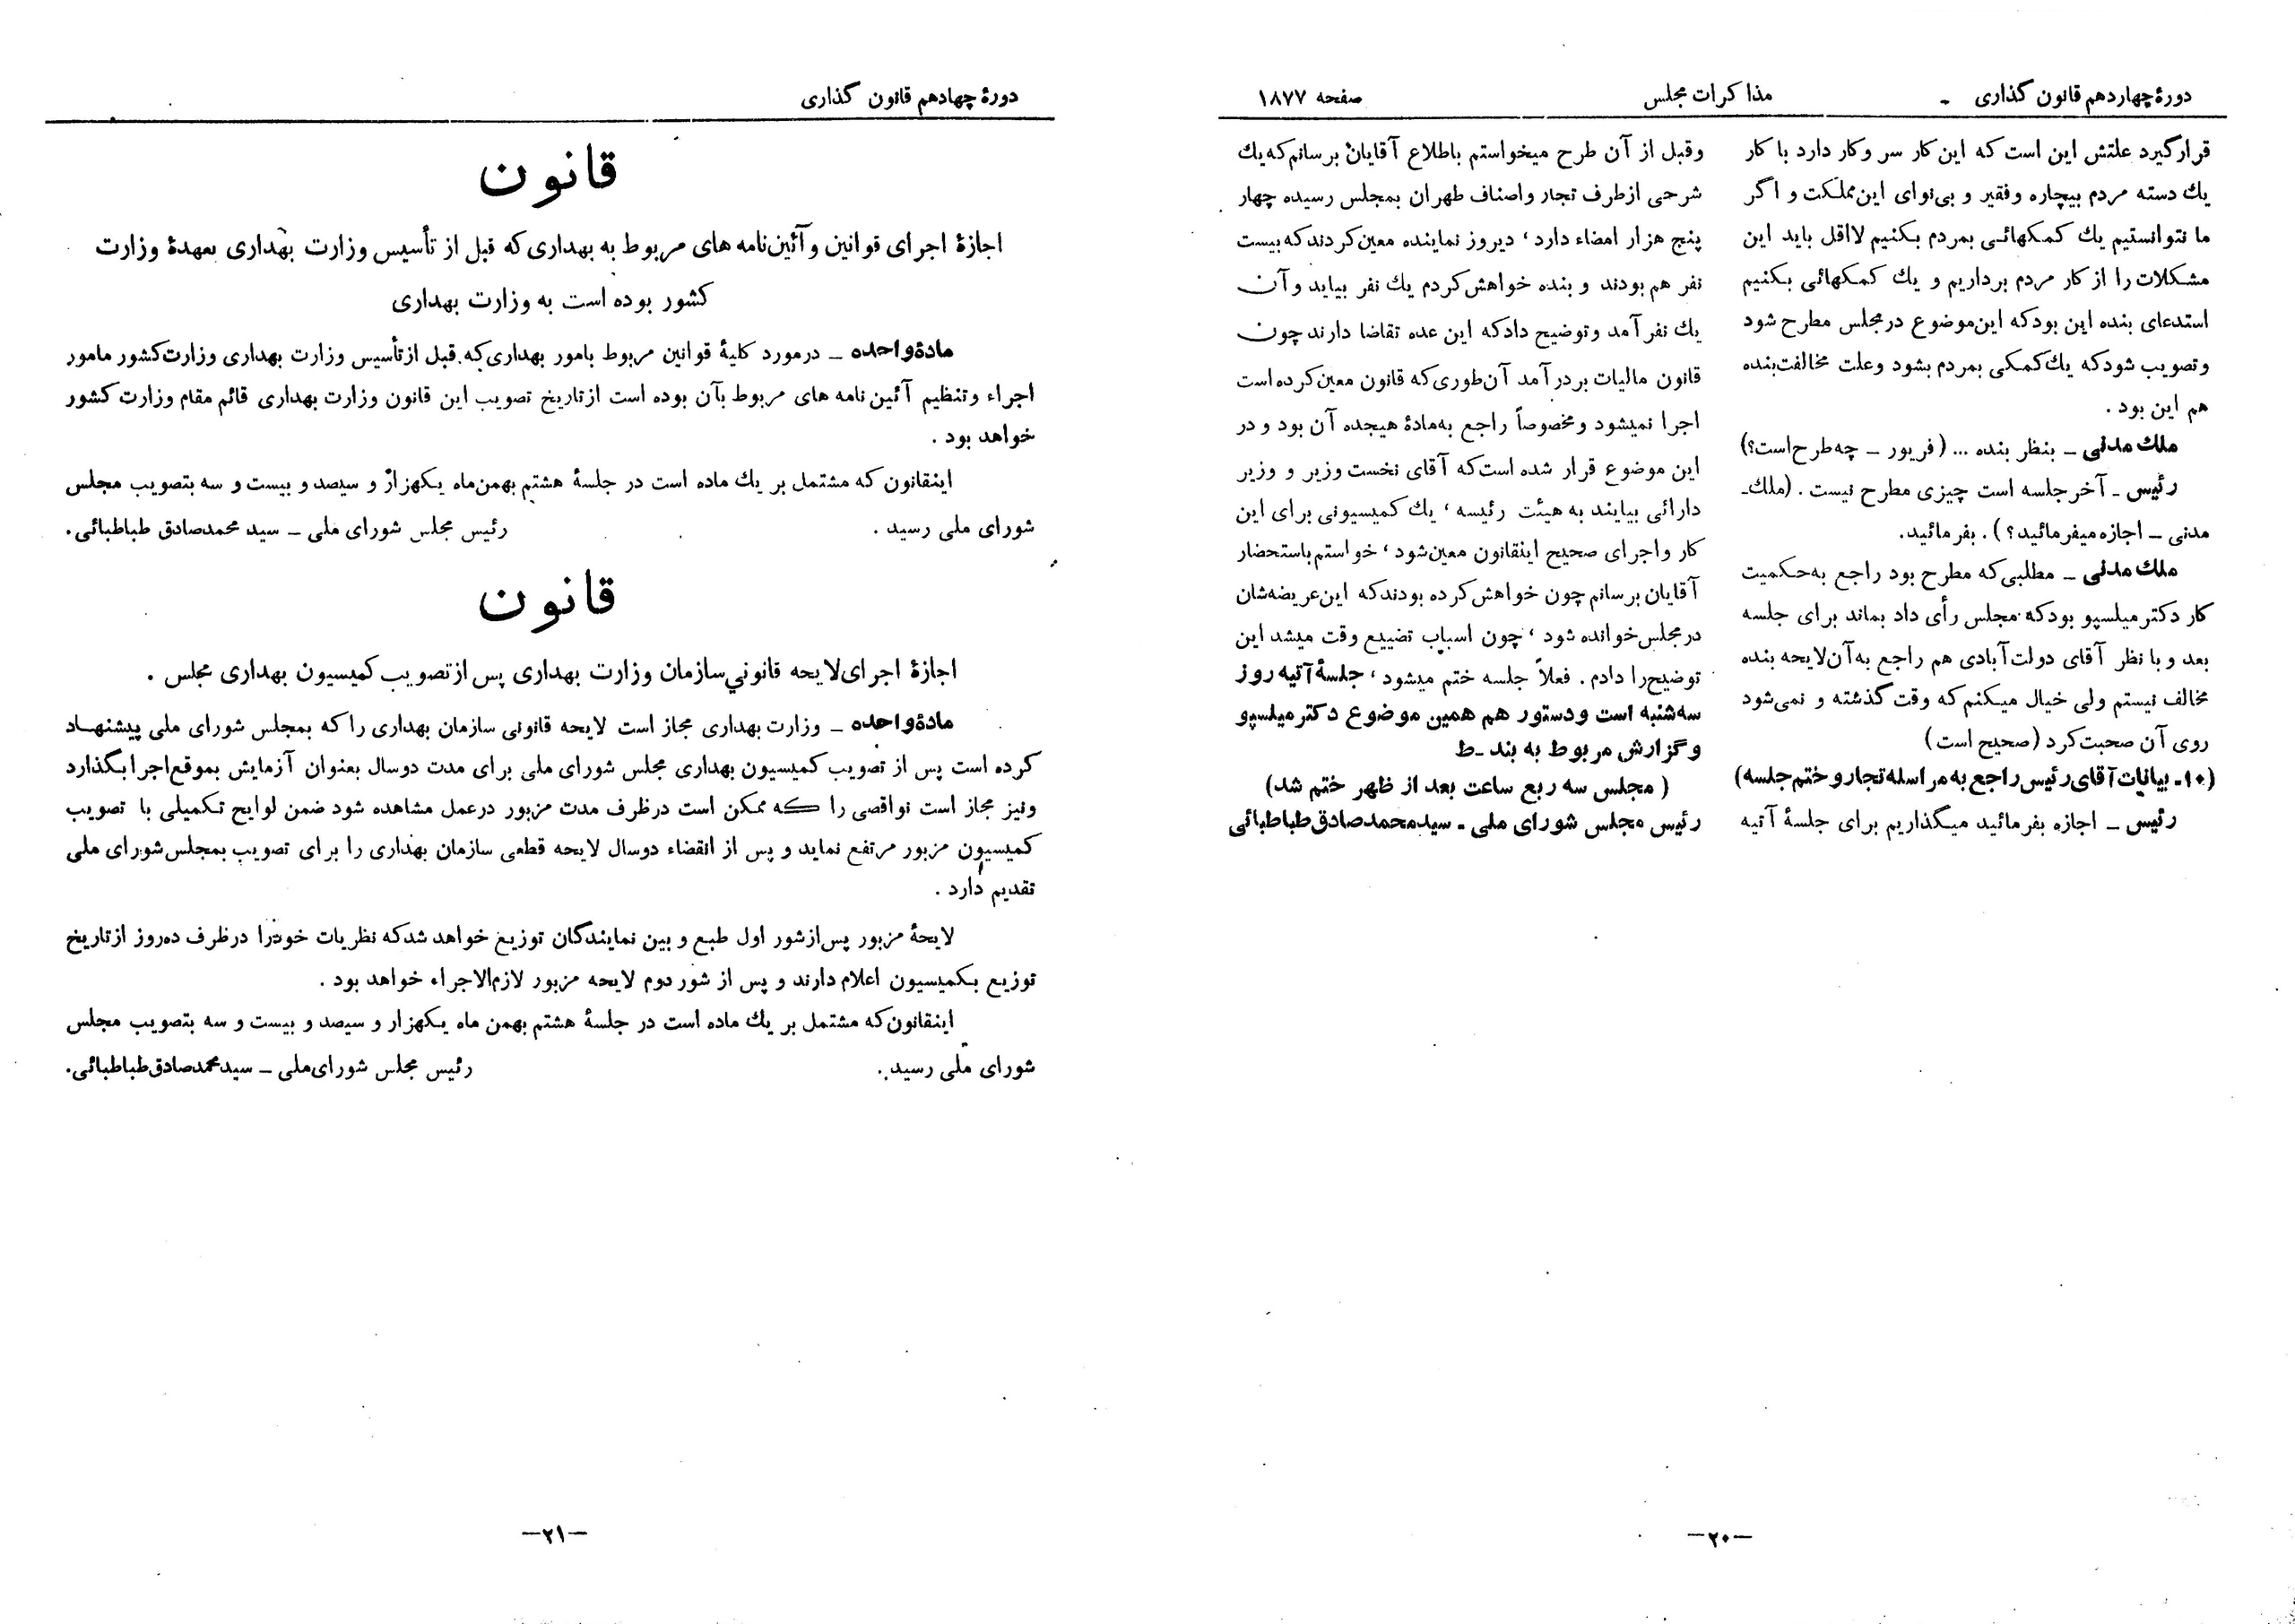 دورهٔ چهاردهم قانون گذاری - مذاکرات مجلس صفحه ۱۸۷۷
قرارگیرد علتش این است که این کار سر وکار دارد با کار
یك دسته مردم بیچاره وفقیر و بی‌نوای این مملکت و اگر
ما نتوانستیم یك کمکهائی بمردم بکنیم لااقل باید این
مشکلات را از کار مردم برداریم و یك کمکهائی بکنیم
استدعای بنده این بود که این موضوع در مجلس مطرح شود
وتصویب شود که یك کمکی بمردم بشود وعلت مخالفت بنده
هم این بود .
ملك مدنی ـ بنظر بنده ... ( فریور ـ چه طرح است؟)
رئیس ـ آخر جلسه است چیزی مطرح نیست . (ملك‌ـ
مدنی ـ اجازه میفرمائید؟ ) . بفرمائید.
ملك مدنی ـ مطلبی که مطرح بود راجع به حکمیت
کار دکتر میلسپو بود که مجلس رأی داد بماند برای جلسه
بعد و با نظر آقای دولت آبادی هم راجع به آن لایحه بنده
مخالف نیستم ولی خیال میکنم که وقت گذشته و نمی‌شود
روی آن صحبت کرد (صحیح است)
(۱۰ـ بیانات آقای رئیس راجع به مراسله تجار و ختم جلسه)
رئیس ـ اجازه بفرمائید میگذاریم برای جلسهٔ آتیه
وقبل از آن طرح میخواستم باطلاع آقایان برسانم که یك
شرحی ازطرف تجار واصناف طهران بمجلس رسیده چهار
پنج هزار امضاء دارد ، دیروز نماینده معین کردند که بیست
نفر هم بودند و بنده خواهش کردم یك نفر بیاید و آن
یك نفر آمد وتوضیح داد که این عده تقاضا دارند چون
قانون مالیات بر درآمد آن طوری که قانون معین کرده است
اجرا نمیشود ومخصوصاً راجع به مادهٔ هیجده آن بود و در
این موضوع قرار شده است که آقای نخست وزیر و وزیر
دارائی بیایند به هیئت رئیسه ، یك کمیسیونی برای این
کار واجرای صحیح اینقانون معین شود ، خواستم باستحضار
آقایان برسانم چون خواهش کرده بودند که این عریضه‌شان
در مجلس خوانده شود ، چون اسباب تضییع وقت میشد این
توضیح را دادم . فعلاً جلسه ختم میشود ، جلسهٔ آتیه روز
سه شنبه است ودستور هم همین موضوع دکتر میلسپو
و گزارش مربوط به بند ـ ط
( مجلس سه ربع ساعت بعد از ظهر ختم شد)
رئیس مجلس شورای ملی ـ سیدمحمدصادق طباطبائی
—۲۰—
دورهٔ چهادهم قانون گذاری
قانون
اجازهٔ اجرای قوانین و آئین‌نامه های مربوط به بهداری که قبل از تأسیس وزارت بهداری بعهدهٔ وزارت
کشور بوده است به وزارت بهداری
مادهٔ واحده ـ درمورد کلیهٔ قوانین مربوط بامور بهداری که قبل از تأسیس وزارت بهداری وزارت کشور مامور
اجراء وتنظیم آئین نامه های مربوط بآن بوده است از تاریخ تصویب این قانون وزارت بهداری قائم مقام وزارت کشور
خواهد بود .
اینقانون که مشتمل بر یك ماده است در جلسهٔ هشتم بهمن ماه یکهزار و سیصد و بیست و سه بتصویب مجلس
شورای ملی رسید . رئیس مجلس شورای ملی ـ سید محمدصادق طباطبائی.
قانون
اجازهٔ اجرای لایحه قانونی سازمان وزارت بهداری پس از تصویب کمیسیون بهداری مجلس .
مادهٔ واحده ـ وزارت بهداری مجاز است لایحه قانونی سازمان بهداری را که بمجلس شورای ملی پیشنهاد
کرده است پس از تصویب کمیسیون بهداری مجلس شورای ملی برای مدت دوسال بعنوان آزمایش بموقع اجرا بگذارد
ونیز مجاز است نواقصی را که ممکن است درظرف مدت مزبور درعمل مشاهده شود ضمن لوایح تکمیلی با تصویب
کمیسیون مزبور مرتفع نماید و پس از انقضاء دوسال لایحه قطعی سازمان بهداری را برای تصویب بمجلس شورای ملی
تقدیم دارد .
لایحهٔ مزبور پس از شور اول طبع و بین نمایندگان توزیع خواهد شد که نظریات خود را درظرف ده روز از تاریخ
توزیع بکمیسیون اعلام دارند و پس از شور دوم لایحه مزبور لازم‌الاجراء خواهد بود .
اینقانون که مشتمل بر یك ماده است در جلسهٔ هشتم بهمن ماه یکهزار و سیصد و بیست و سه بتصویب مجلس
شورای ملی رسید. رئیس مجلس شورای ملی ـ سیدمحمدصادق طباطبائی.
—۲۱—